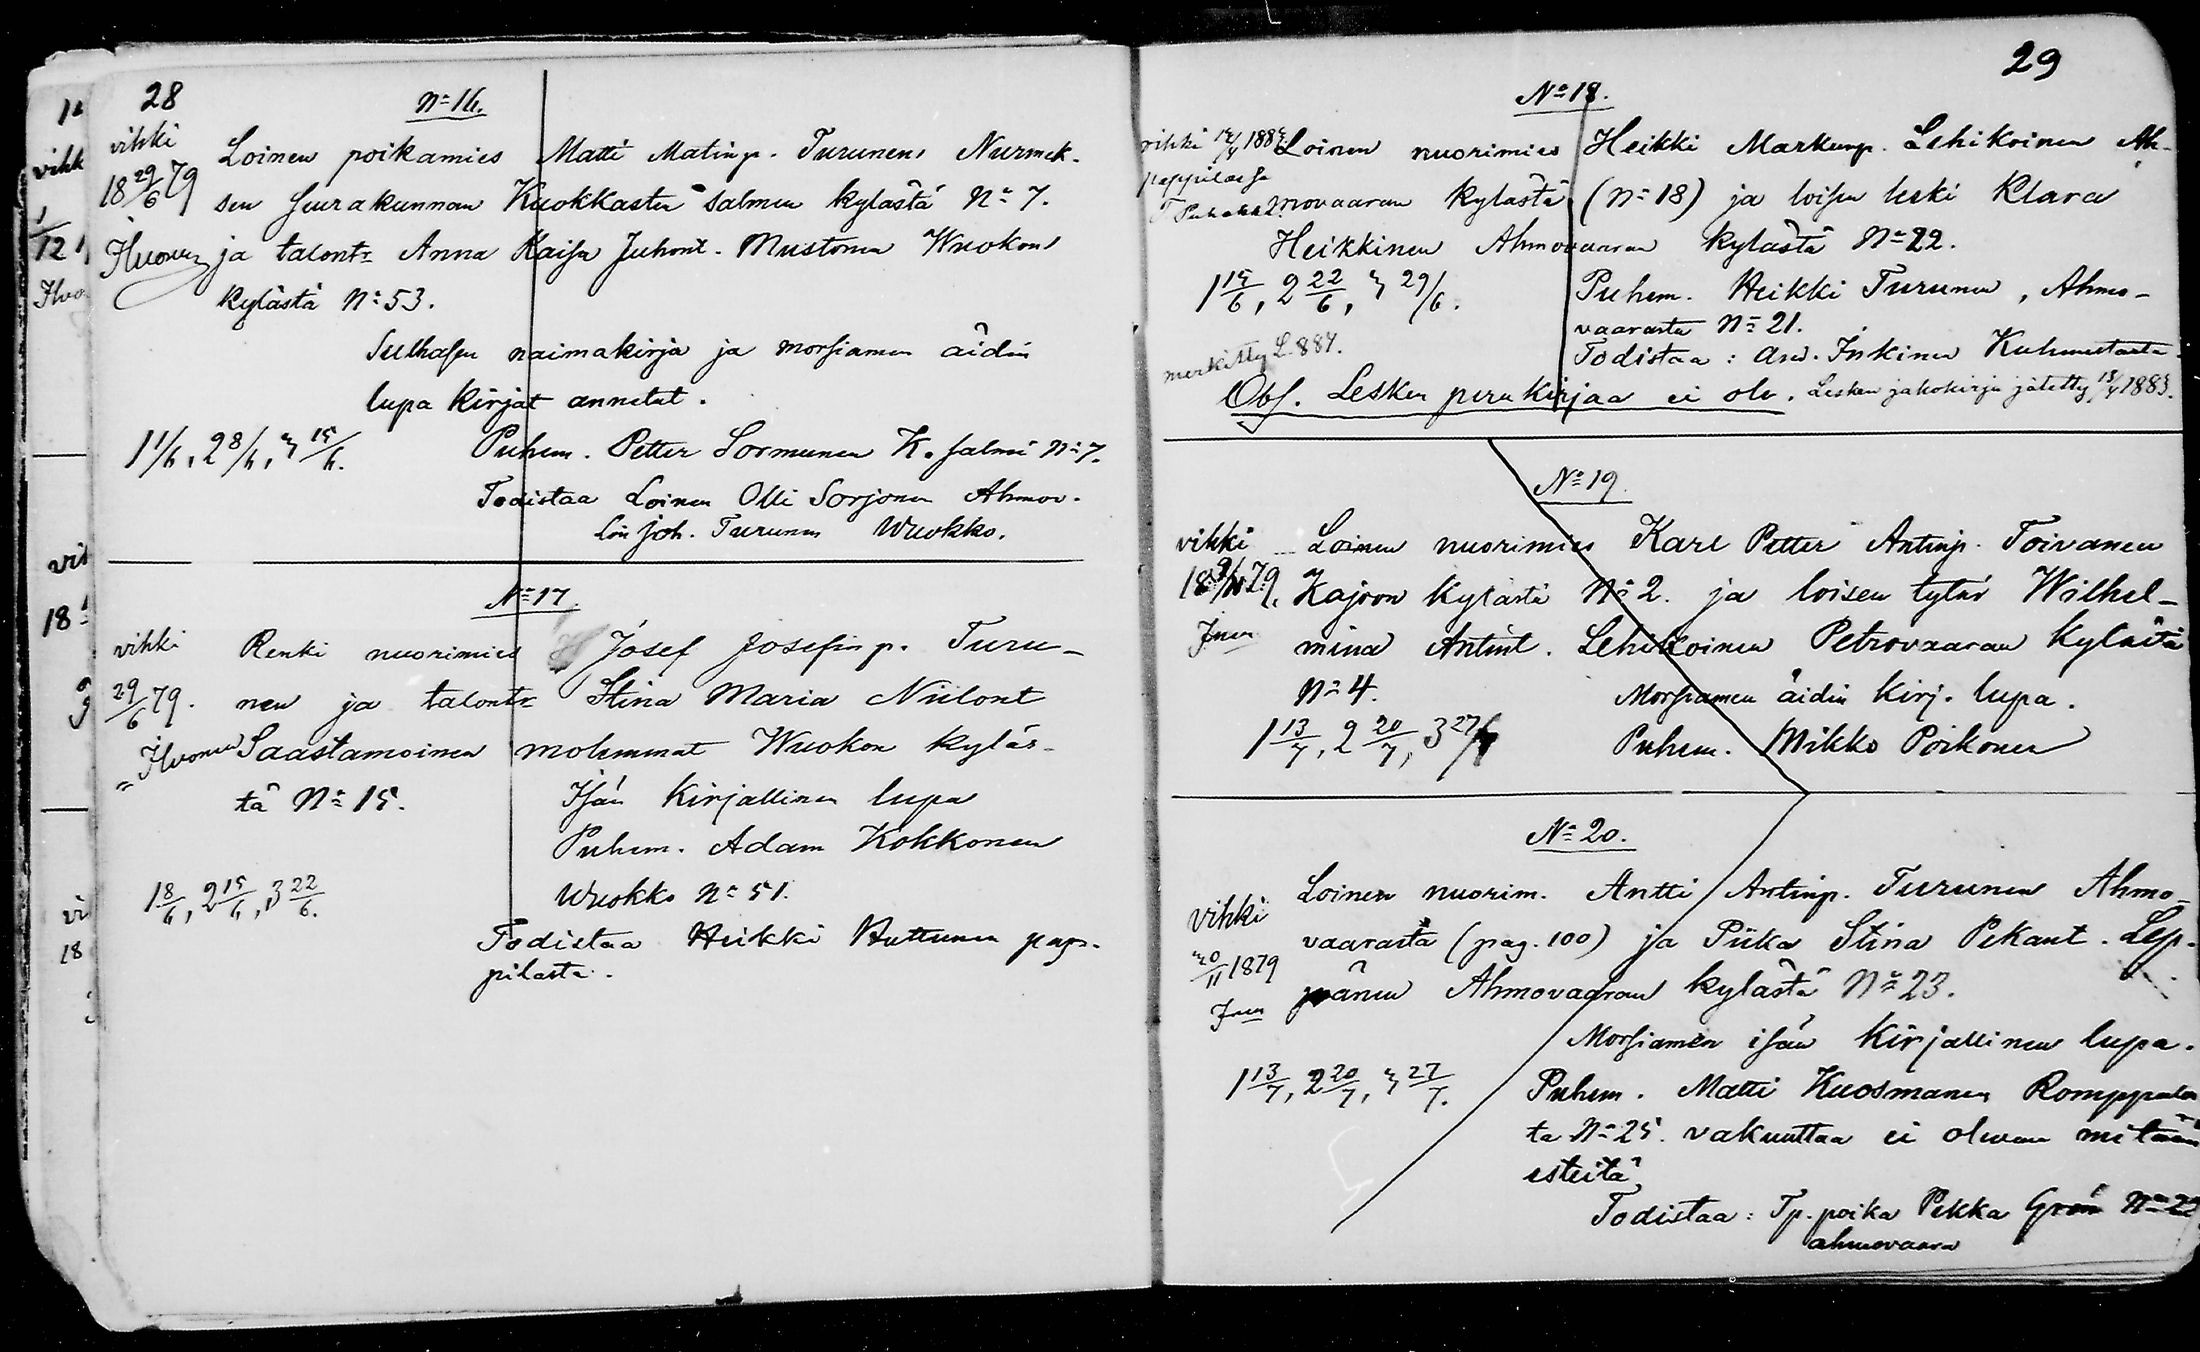 28
N:o 16.
vihki
18 29/6 79
Ihvonen
Loinen poikamies Matti Matinp. Turunen, Nurmek-
sen seurakunnan Kuokkasten salmen kylästä N:o 7.
ja talontr Anna Kaisa Juhont. Mustonen Wuokon
kylästä N:o 53.
Sulhasen naimakirja ja morsiamen äidin
lupa kirjat annetut.
1 1/6, 2 8/6, 3 15/6.
Puhem. Petter Sormunen K. salmi N:o 7.
Todistaa Loinen Olli Sorjonen Ahmov.
Loin Joh. Turunen Wuokko.
N:o 17.
vihki
29/6 79.
Ihvonen
Renki nuorimies Josef Josefinp. Turu-
nen ja talontr Stina Maria Niilont
Saastamoinen molemmat Wuokon kyläs-
tä N:o 15.
Isän kirjallinen lupa
Puhem. Adam Kokkonen
Wuokko N:o 51.
1 8/6, 2 15/6, 3 22/6.
Todistaa Heikki Huttunen pap-
pilasta.
29
N:o 18.
vihki 1883
pappilassa
Loinen nuorimies Heikki Markunp. Lehikoinen Ah-
movaaran kylästä (N:o 18) ja loisen leski Klara
Heikkinen Ahmovaaran kylästä N:o 22.
1 15/6, 2 22/6, 3 29/6.
Puhem. Heikki Turunen, Ahmo-
vaarasta N:o 21.
Todistaa: And. Inkinen Kuhnustasta
merkitty L. 884.
Obs. Lesken perukirjaa ei ole. Lesken jakokirja jätetty 1883.
N:o 19.
vihki
Loinen nuorimies Karl Petter Antinp. Toivanen
Kajoon kylästä N:o 2. ja loisen tytär Wilhel-
mina Antint. Lehikoinen Petrovaaran kylästä
N:o 4.
Morsiamen äidin kirj. lupa.
1 13/7, 2 20/7, 3 27/7
Puhem. Mikko Poikonen
N:o 20.
vihki
30/11 1879
Loinen nuorim. Antti Antinp. Turunen Ahmo-
vaarasta (pag. 100) ja Piika Stina Pekant. Lep-
pänen Ahmovaaran kylästä N:o 23.
Morsiamen isän kirjallinen lupa.
1 13/7, 2 20/7, 3 27/7.
Puhem. Matti Kuosmanen Romppala
ta N:o 25. vakuuttaa ei olevan mitään
esteitä
Todistaa: Tp. poika Pekka Grön N:o 22
ahmovaara